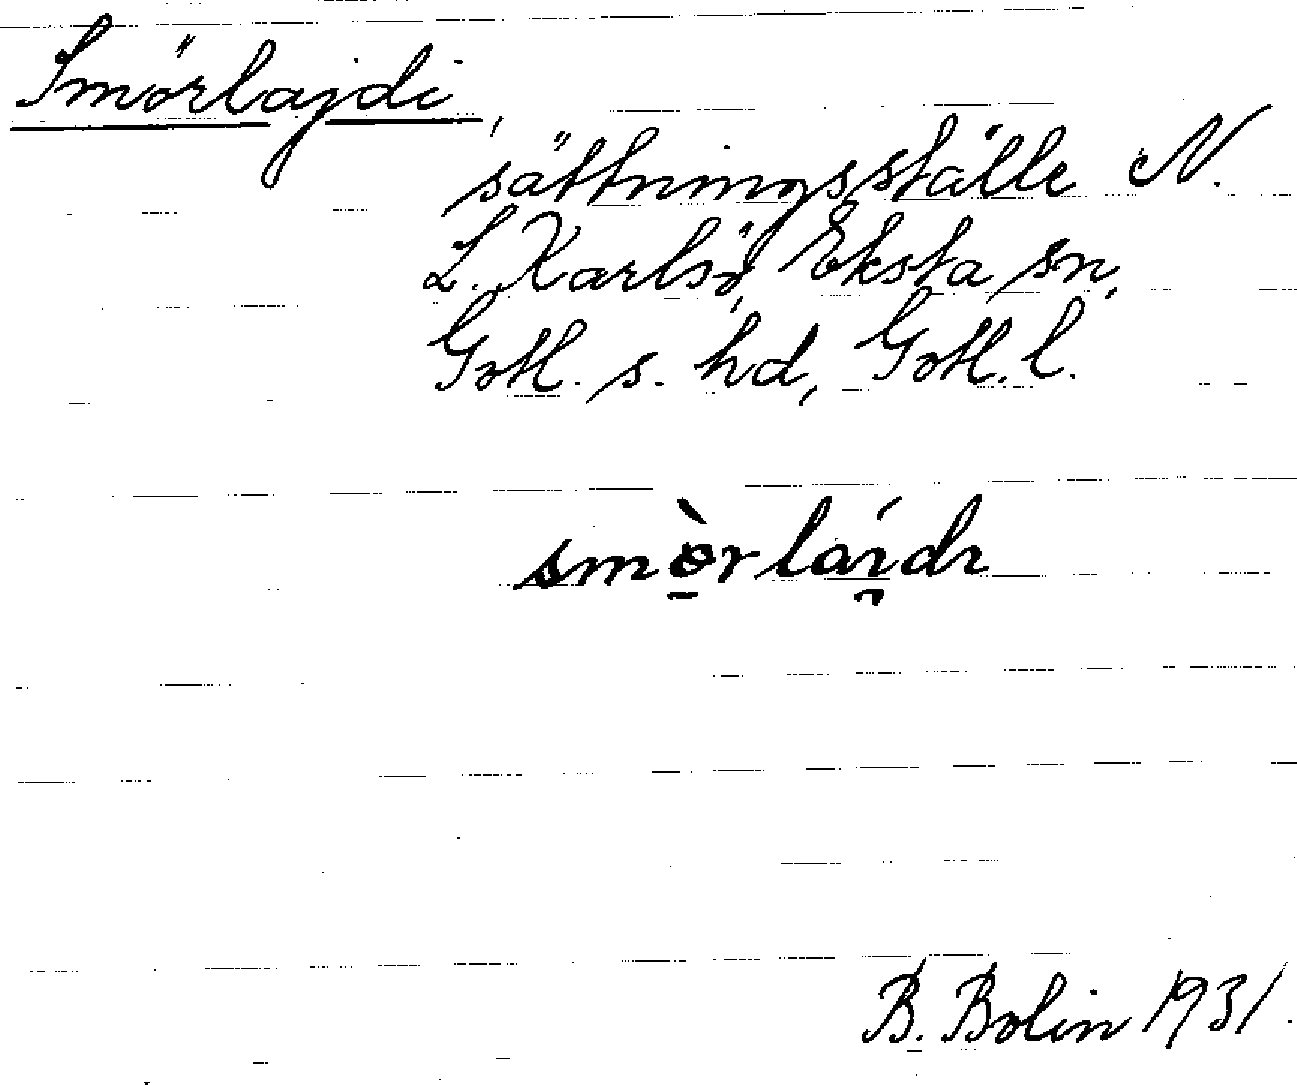 Smörlajdi,
sättningsställe N.
L. Karlsö, Eksta sn,
Gotl. s. hd, Gotl. l.
smö̀rláı̯dı
B. Bolin 1931.